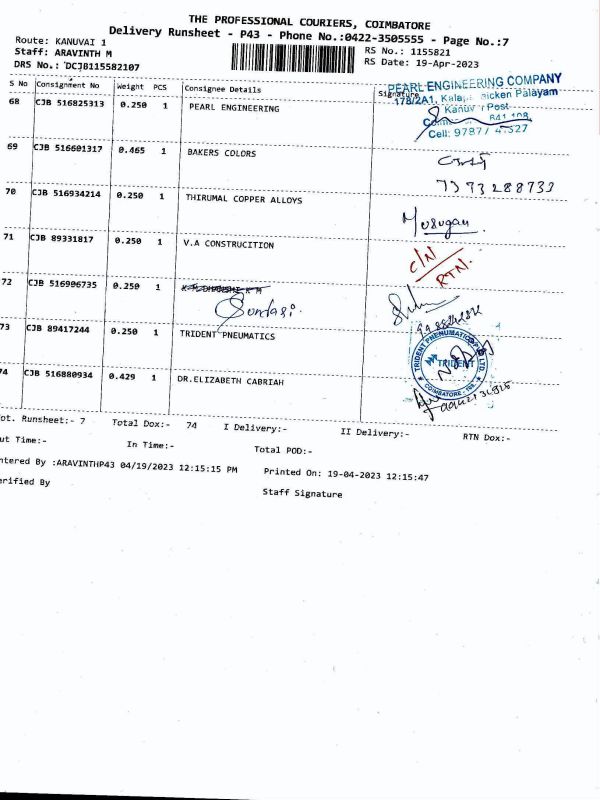 THE PROFESSIONAL COURIERS, COIMBATORE
Delivery Runsheet - P43 - Phone No.:0422-3505555 - Page No.:7
Route: KANUVAI 1
Staff: ARAVINTH M
DRS No.: DCJB115582107
RS No.: 1155821
RS Date: 19-Apr-2023
S No Consignment No Weight PCS Consignee Details Signature
PEARL ENGINEERING COMPANY
178/2A1, Palayam
Post
68 CJB 516825313 0.250 1 PEARL ENGINEERING
Cell:
69 CJB 516601317 0.465 1 BAKERS COLORS
7373288733
70 CJB 516934214 0.250 1 THIRUMAL COPPER ALLOYS
Murugan
71 CJB 89331817 0.250 1 V.A CONSTRUCITION
C/N
RTN.
72 CJB 516906735 0.250 1
73 CJB 89417244 0.250 1 TRIDENT PNEUMATICS
TRIDENT PNEUMATICS LTD.
TRIDENT
COIMBATORE
74 CJB 516880934 0.429 1 DR.ELIZABETH CABRIAH
ot. Runsheet:- 7 Total Dox:- 74 I Delivery:- II Delivery:- RTN Dox:-
ut Time:- In Time:- Total POD:-
ntered By :ARAVINTHP43 04/19/2023 12:15:15 PM Printed On: 19-04-2023 12:15:47
erified By Staff Signature